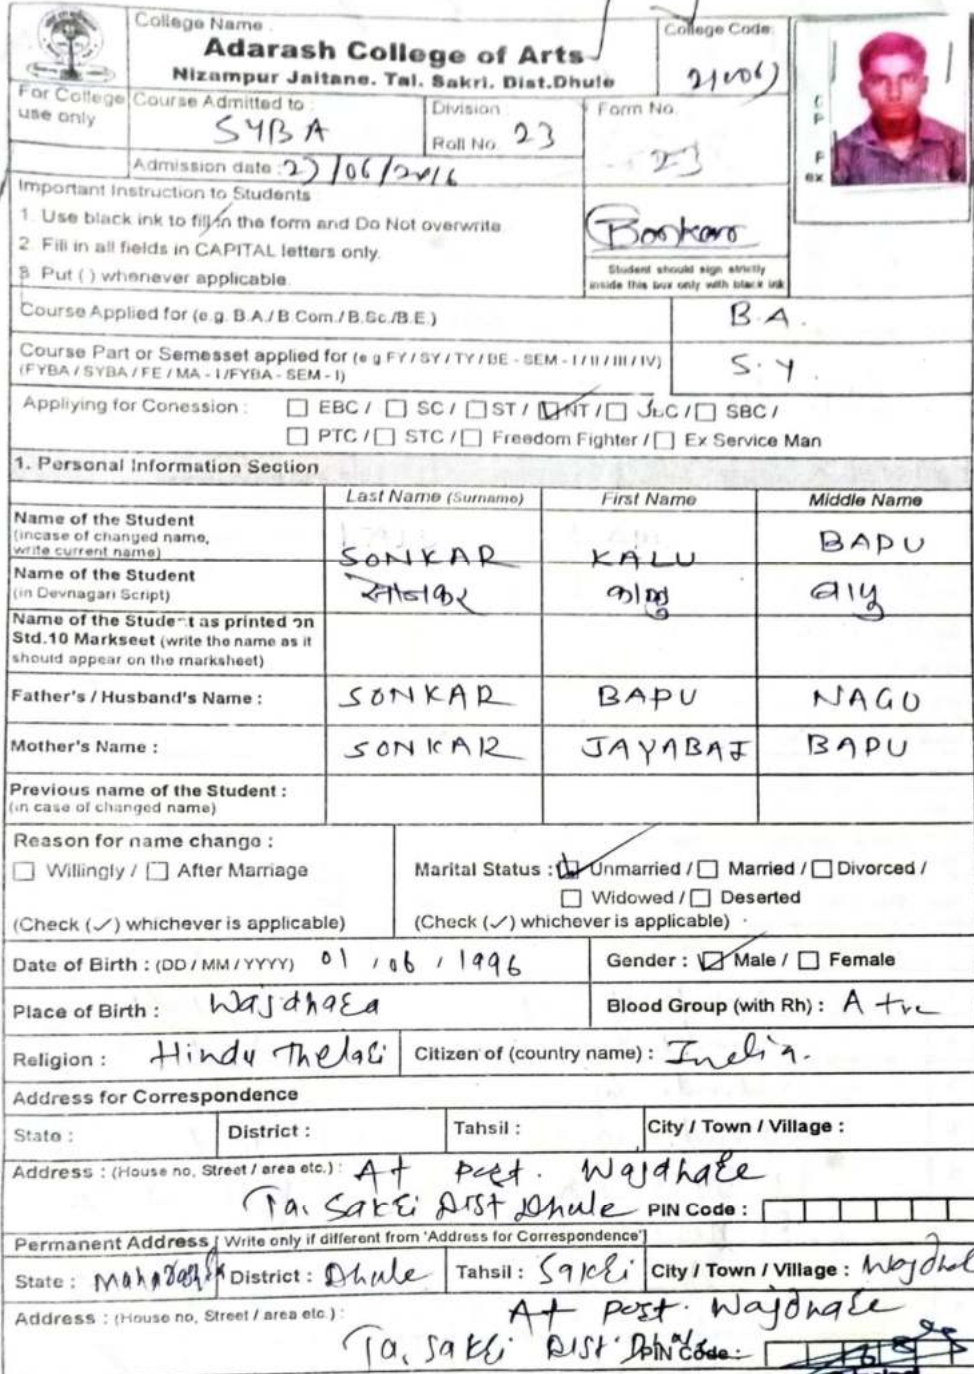 College Name
College Code:
Adarash College of Arts
Nizampur Jaitane. Tal. Sakri. Dist.Dhule
For College use only
Course Admitted to :
SYBA
Division :
Roll No. 23
Form No.
23
Admission date : 27/06/2016
Important Instruction to Students
1. Use black ink to fill in the form and Do Not overwrite.
2. Fill in all fields in CAPITAL letters only.
3. Put ( ) whenever applicable.
Student should sign strictly
inside this box only with black ink
Course Applied for (e.g. B.A./B.Com./B.Sc./B.E.)
B.A.
Course Part or Semesset applied for (e g FY / SY / TY / BE - SEM - I / II / III / IV)
(FYBA / SYBA / FE / MA - I /FYBA - SEM - I)
S.Y.
Appliying for Conession : EBC / SC / ST / NT / SBC /
PTC / STC / Freedom Fighter / Ex Service Man
1. Personal Information Section
Last Name (Surname) First Name Middle Name
Name of the Student
(incase of changed name,
write current name)
SONKAR KALU BAPU
Name of the Student
(in Devnagari Script)
सोनकर काळु बापु
Name of the Student as printed on
Std.10 Markseet (write the name as it
should appear on the marksheet)
Father's / Husband's Name : SONKAR BAPU NAGU
Mother's Name : SONKAR JAYABAI BAPU
Previous name of the Student :
(in case of changed name)
Reason for name change :
Willingly / After Marriage
(Check (✓) whichever is applicable)
Marital Status : Unmarried / Married / Divorced /
Widowed / Deserted
(Check (✓) whichever is applicable)
Date of Birth : (DD / MM / YYYY) 01 / 06 / 1996
Gender : Male / Female
Place of Birth :
Blood Group (with Rh) : A +ve
Religion : Hindu
Citizen of (country name) : India.
Address for Correspondence
State : District : Tahsil : City / Town / Village :
Address : (House no, Street / area etc.) : At post.
Ta. Sakri Dist Dhule PIN Code :
Permanent Address Write only if different from 'Address for Correspondence'
State : Maharashtra District : Dhule Tahsil : Sakri City / Town / Village :
Address : (House no, Street / area etc.) : At post.
Ta. Sakri Dist. Dhule PIN Code :